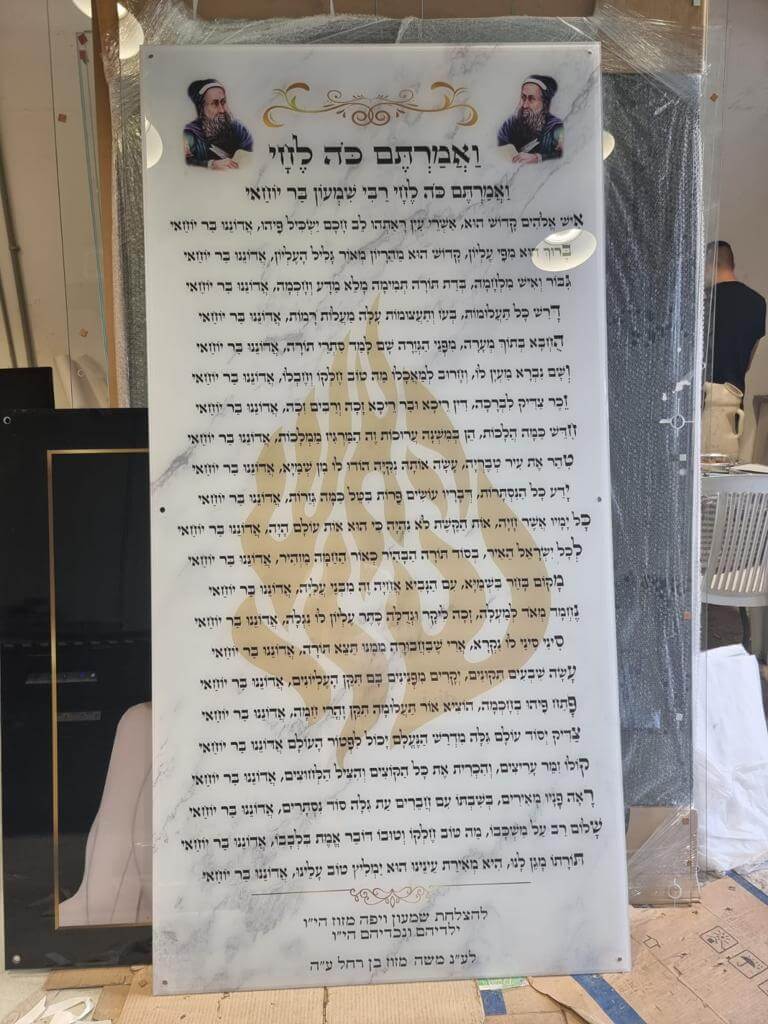 וַאֲמַרְתֶּם כֹּה לֶחָי
וַאֲמַרְתֶּם כֹּה לֶחָי רַבִּי שִׁמְעוֹן בַּר יוֹחַאי
אִישׁ אֱלֹהִים קָדוֹשׁ הוּא, אַשְׁרֵי עַיִן רָאַתְהוּ לֵב חָכָם יַשְׂכִּיל פִּיהוּ, אֲדוֹנֵנוּ בַּר יוֹחַאי
בָּרוּךְ הוּא מִפִּי עֶלְיוֹן, קָדוֹשׁ הוּא מֵהֵרָיוֹן מְאוֹר גָּלִיל הָעֶלְיוֹן, אֲדוֹנֵנוּ בַּר יוֹחַאי
גִּבּוֹר וְאִישׁ מִלְחָמָה, בְּדַת תּוֹרָה תְּמִימָה מָלֵא מַדָּע וְחָכְמָה, אֲדוֹנֵנוּ בַּר יוֹחַאי
דָּרַשׁ כָּל תַּעֲלוּמוֹת, בְּעֹז וְתַעֲצוּמוֹת עָלָה מַעֲלוֹת רָמוֹת, אֲדוֹנֵנוּ בַּר יוֹחַאי
הֻחְבָּא בְּתוֹךְ מְעָרָה, מִפְּנֵי הַגְּזֵרָה שָׁם לָמַד סִתְרֵי תוֹרָה, אֲדוֹנֵנוּ בַּר יוֹחַאי
וְשָׁם נִבְרָא מַעְיָן לוֹ, וְחָרוּב לְמַאֲכָלוֹ מַה טּוֹב חֶלְקוֹ וְחַבְלוֹ, אֲדוֹנֵנוּ בַּר יוֹחַאי
זֵכֶר צַדִּיק לִבְרָכָה, דַּיָּן רִיכָא וּבַר רִיכָא זָכָה וְרַבִּים זִכָּה, אֲדוֹנֵנוּ בַּר יוֹחַאי
חִדֵּשׁ כַּמָּה הֲלָכוֹת, הֵן בְּמִשְׁנָה עֲרוּכוֹת זֶה הַמַּרְגִּיז מַמְלָכוֹת, אֲדוֹנֵנוּ בַּר יוֹחַאי
טִהֵר אֶת עִיר טְבֶרְיָה, עָשָׂה אוֹתָהּ נְקִיָּה הוֹדוּ לוֹ מִן שְׁמַיָּא, אֲדוֹנֵנוּ בַּר יוֹחַאי
יָדַע כָּל הַנִּסְתָּרוֹת, דְּבָרָיו עוֹשִׂים פֵּרוֹת בִּטֵּל כַּמָּה גְּזֵרוֹת, אֲדוֹנֵנוּ בַּר יוֹחַאי
כָּל יָמָיו אֲשֶׁר חָיָה, אוֹת הַקֶּשֶׁת לֹא נִהְיָה כִּי הוּא אוֹת עוֹלָם הָיָה, אֲדוֹנֵנוּ בַּר יוֹחַאי
לְכָל יִשְׂרָאֵל הֵאִיר, בְּסוֹד תּוֹרָה הַבָּהִיר כְּאוֹר הַחַמָּה מַזְהִיר, אֲדוֹנֵנוּ בַּר יוֹחַאי
מָקוֹם בָּחַר בִּשְׁמַיָּא, עִם הַנָּבִיא אֲחִיָּה זֶה מִבְּנֵי עֲלִיָּה, אֲדוֹנֵנוּ בַּר יוֹחַאי
נֶחְמָד מְאֹד לְמַעְלָה, זָכָה לִיקָר וּגְדֻלָּה כֶּתֶר עֶלְיוֹן לוֹ נִגְלָה, אֲדוֹנֵנוּ בַּר יוֹחַאי
סִינַי סִינַי לוֹ נִקְרָא, אֲרִי שֶׁבַּחֲבוּרָה מִמֶּנּוּ תֵּצֵא תוֹרָה, אֲדוֹנֵנוּ בַּר יוֹחַאי
עָשָׂה שִׁבְעִים תִּקּוּנִים, יְקָרִים מִפְּנִינִים בָּם תִּקֵּן הָעֶלְיוֹנִים, אֲדוֹנֵנוּ בַּר יוֹחַאי
פָּתַח פִּיהוּ בְּחָכְמָה, הוֹצִיא אוֹר תַּעֲלוּמָה תִּקֵּן זָהֳרֵי חַמָּה, אֲדוֹנֵנוּ בַּר יוֹחַאי
צַדִּיק יְסוֹד עוֹלָם גִּלָּה מִדְרַשׁ הַנֶּעֱלָם יָכוֹל לִפְטוֹר הָעוֹלָם אֲדוֹנֵנוּ בַּר יוֹחַאי
קוֹלוֹ זִמֵּר עָרִיצִים, וְהִכְרִית אֶת כָּל הַקּוֹצִים וְהִצִּיל הַלְּחוּצִים, אֲדוֹנֵנוּ בַּר יוֹחַאי
רָאָה פָּנָיו מְאִירִים, בְּשִׁבְתּוֹ עִם חֲבֵרִים עֵת גִּלָּה סוֹד נִסְתָּרִים, אֲדוֹנֵנוּ בַּר יוֹחַאי
שָׁלוֹם רַב עַל מִשְׁכָּבוֹ, מַה טּוֹב חֶלְקוֹ וְטוּבוֹ דּוֹבֵר אֱמֶת בִּלְבָבוֹ, אֲדוֹנֵנוּ בַּר יוֹחַאי
תּוֹרָתוֹ מָגֵן לָנוּ, הִיא מְאִירַת עֵינֵינוּ הוּא יַמְלִיץ טוֹב עָלֵינוּ, אֲדוֹנֵנוּ בַּר יוֹחַאי
להצלחת שמעון ויפה מזוז הי״ו
ילדיהם ונכדיהם הי״ו
לע״נ משה מזוז בן רחל ע״ה